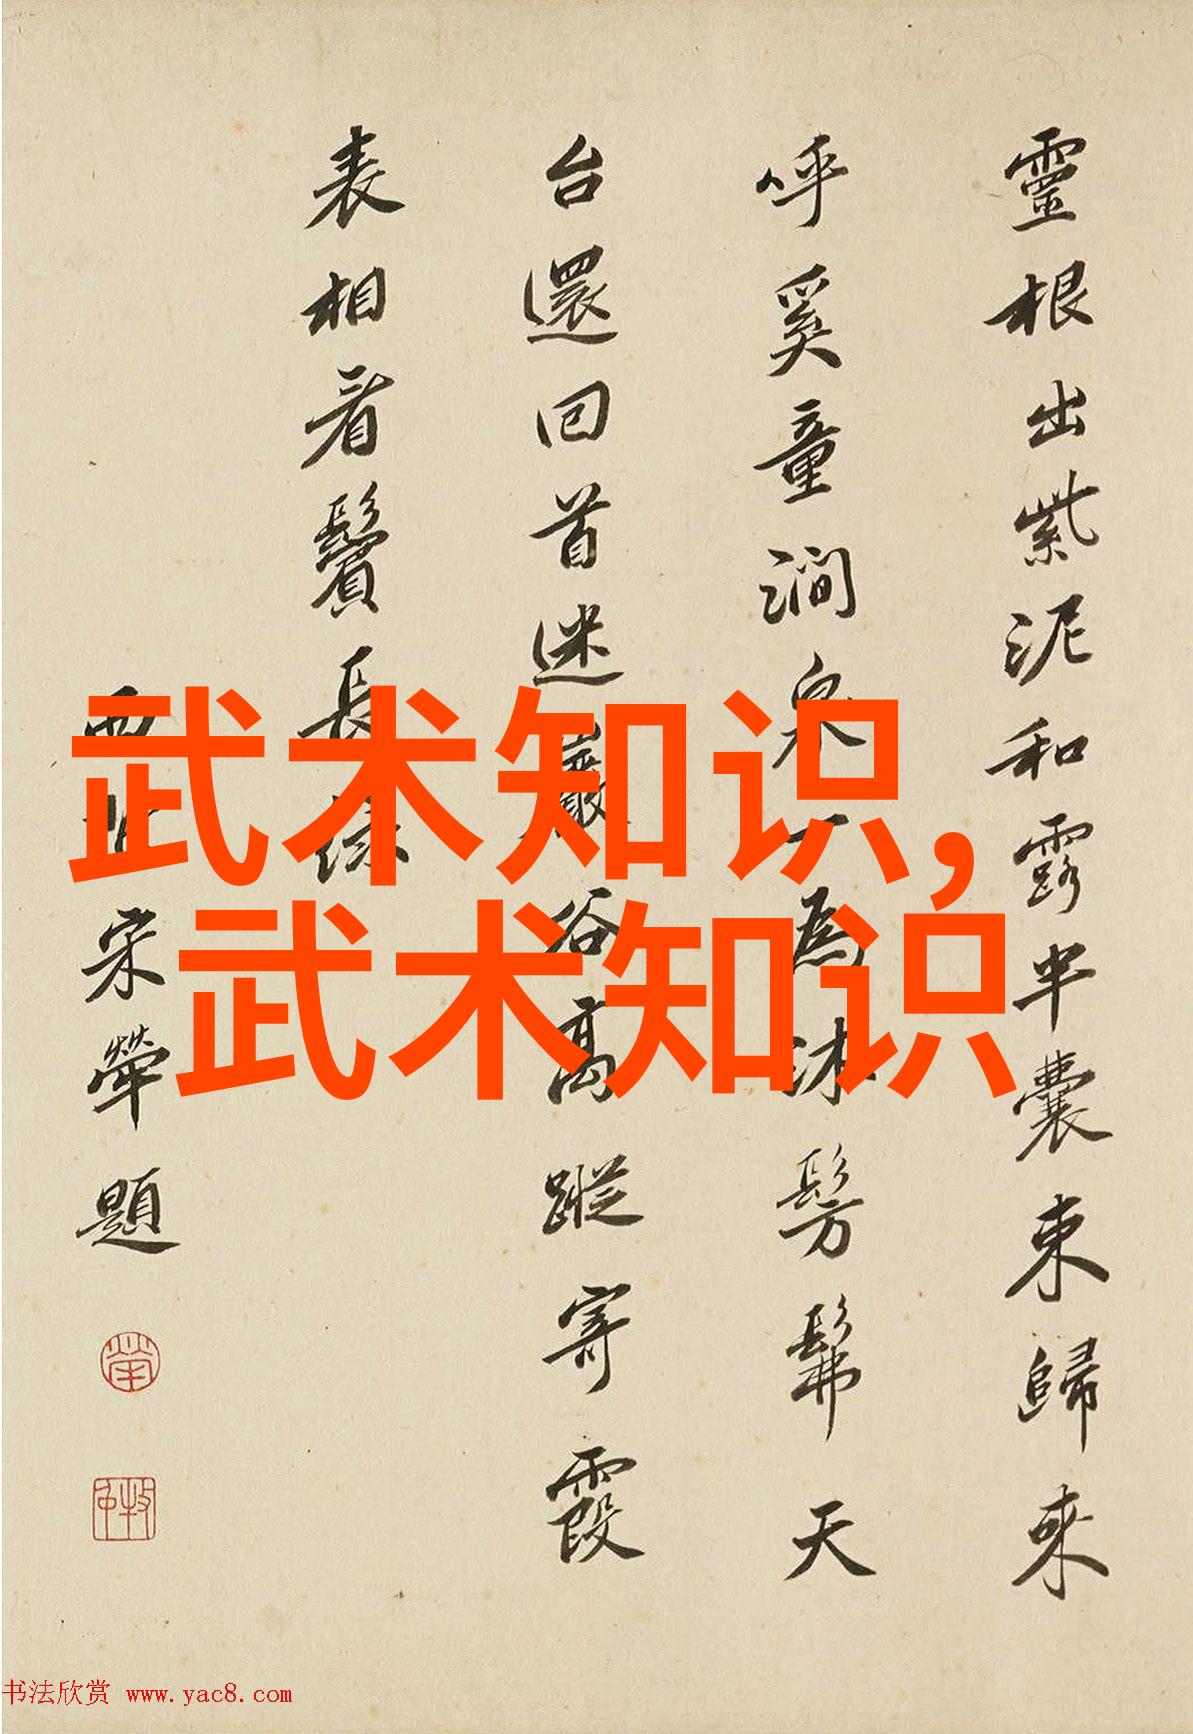 靈根出紫泥和露半囊束歸來
呼奚童澗泉一為沐髣髴天
台還回首迷巖谷高蹤寄霞
表相看鬢長綠
宋犖題
武术知识,
武术知识
书法欣赏 www.yac8.com